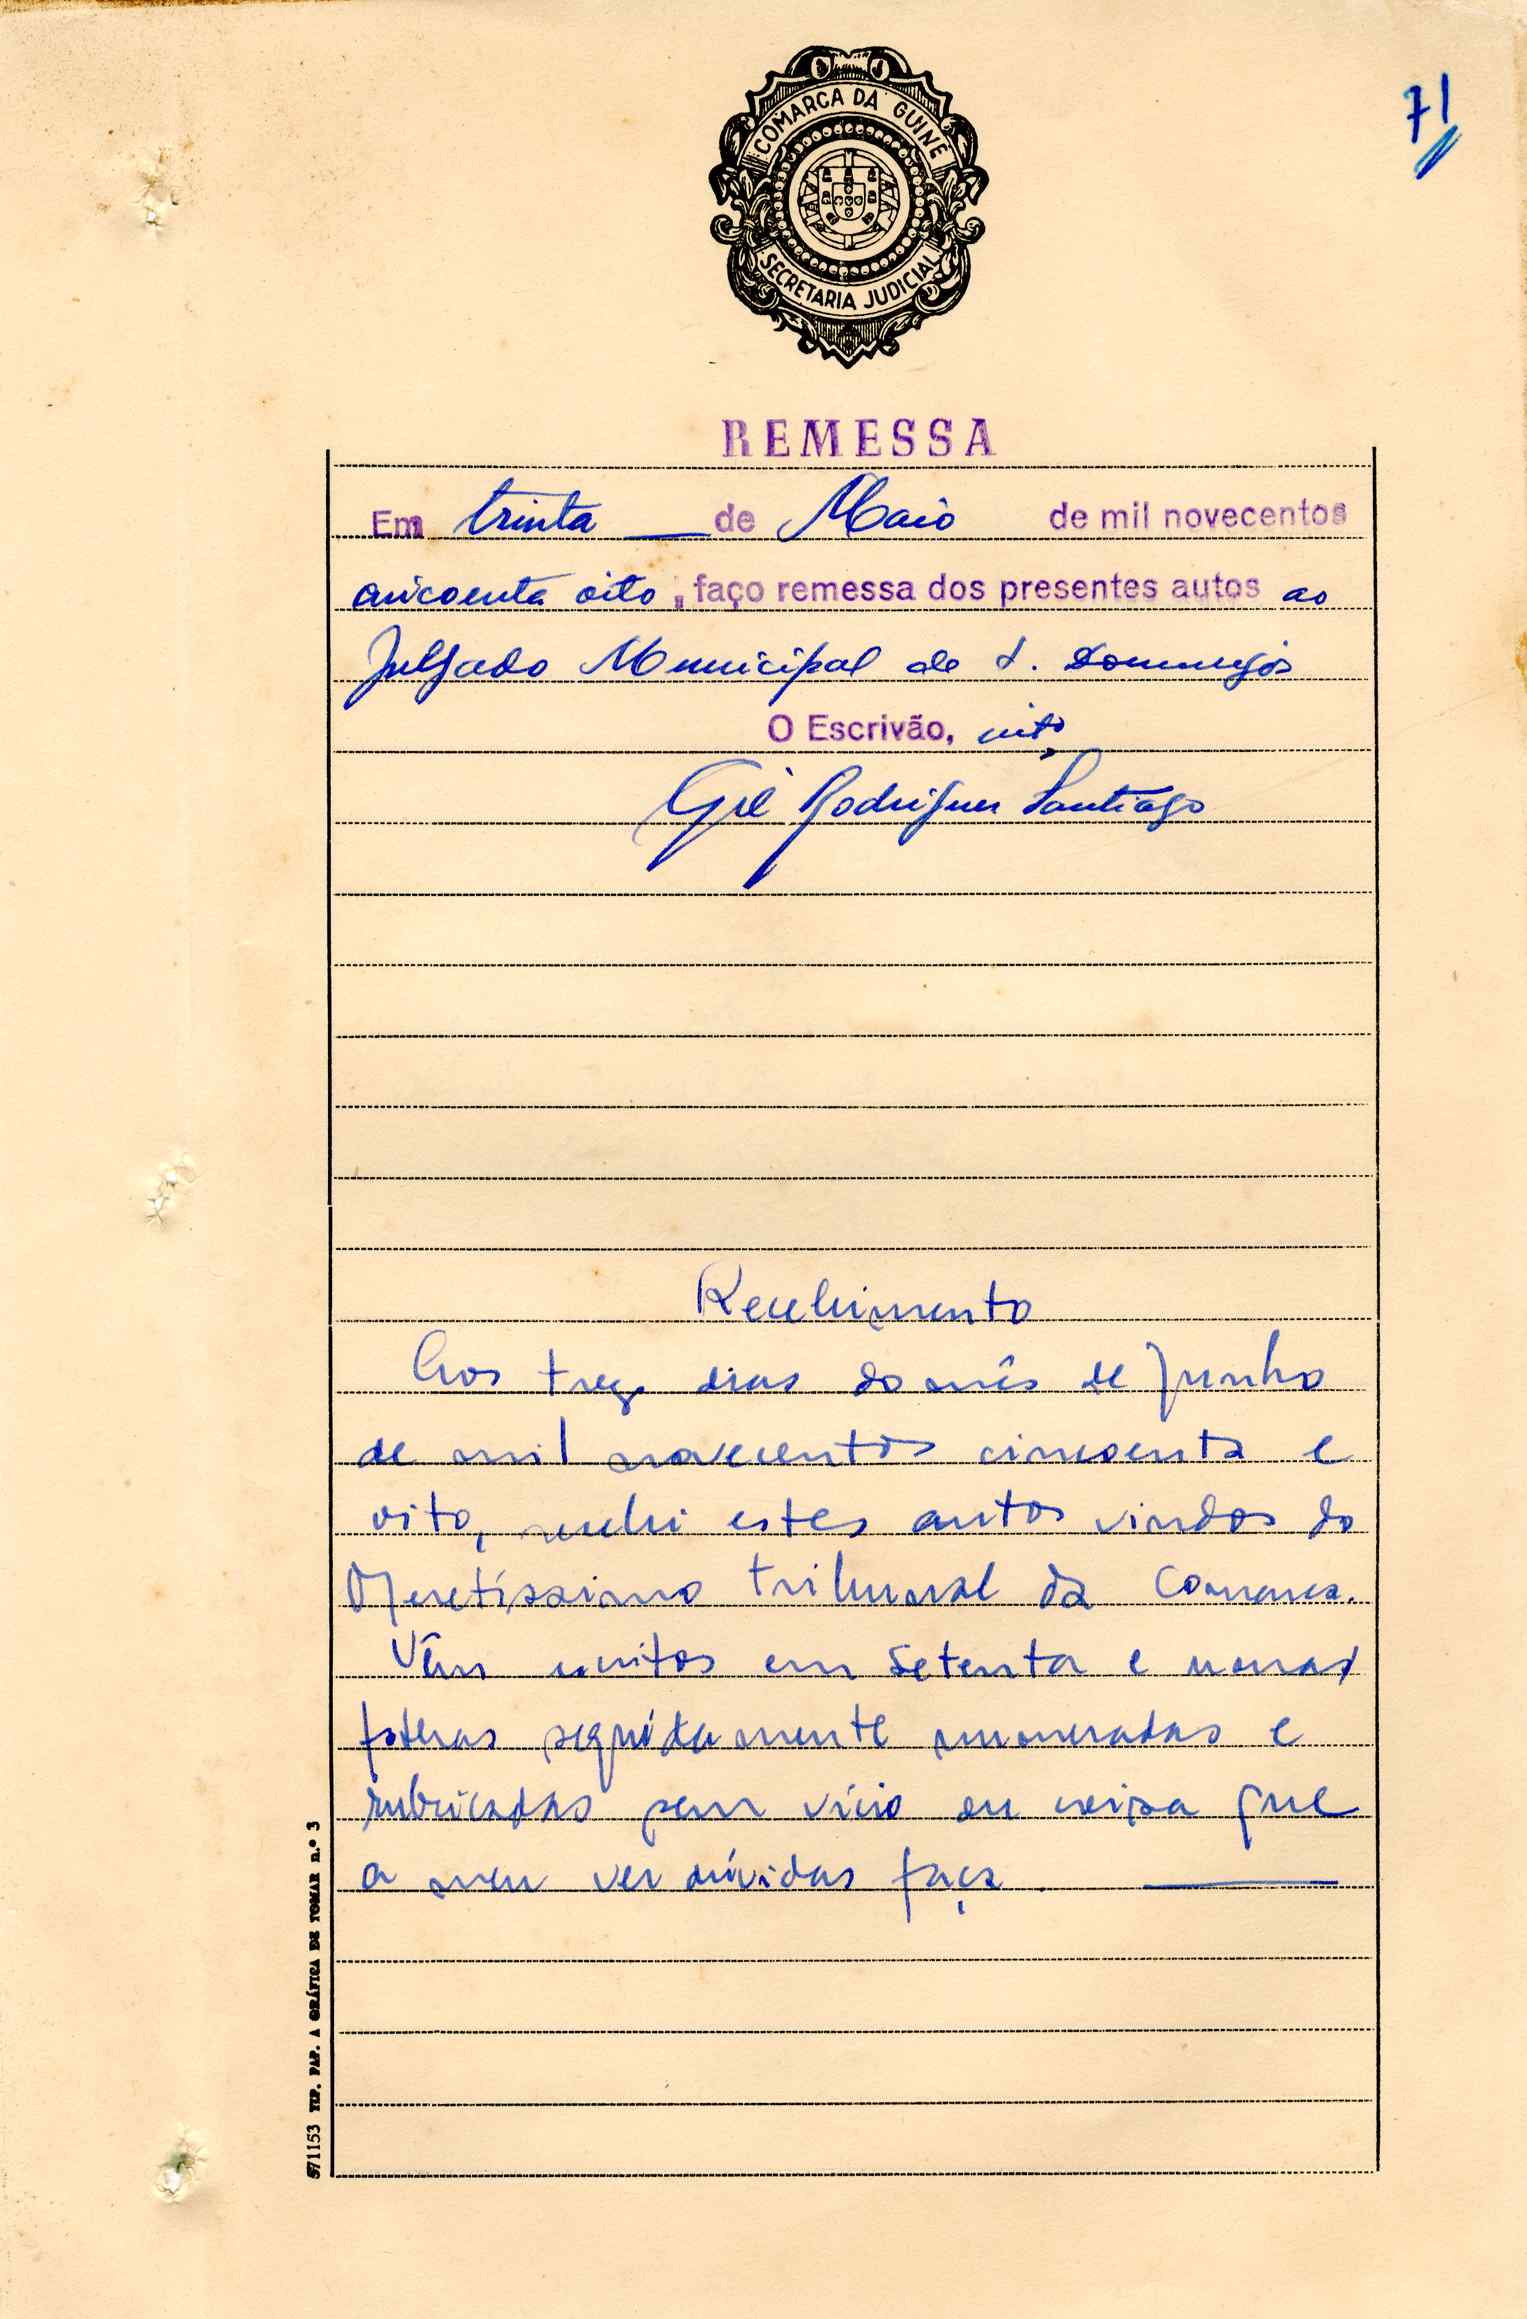 71
COMARCA DA GUINÉ
SECRETARIA JUDICIAL
REMESSA
Em trinta — de Maio de mil novecentos
cincoenta oito, faço remessa dos presentes autos ao
Julgado Municipal de S. Domingos
O Escrivão, intº,
Gil Rodrigues Santiago
Recebimento
Aos treze dias do mês de Junho
de mil novecentos cincoenta e
oito, recebi estes autos vindos do
Meretíssimo Tribunal da Comarca.
Vêm escritos em setenta e
folhas seguidamente numeradas e
rubricadas sem vício ou coisa que
a meu ver dúvidas faça. ———
571153 TIP. PAP. A GRÁFICA DE TOMAR n.º 3